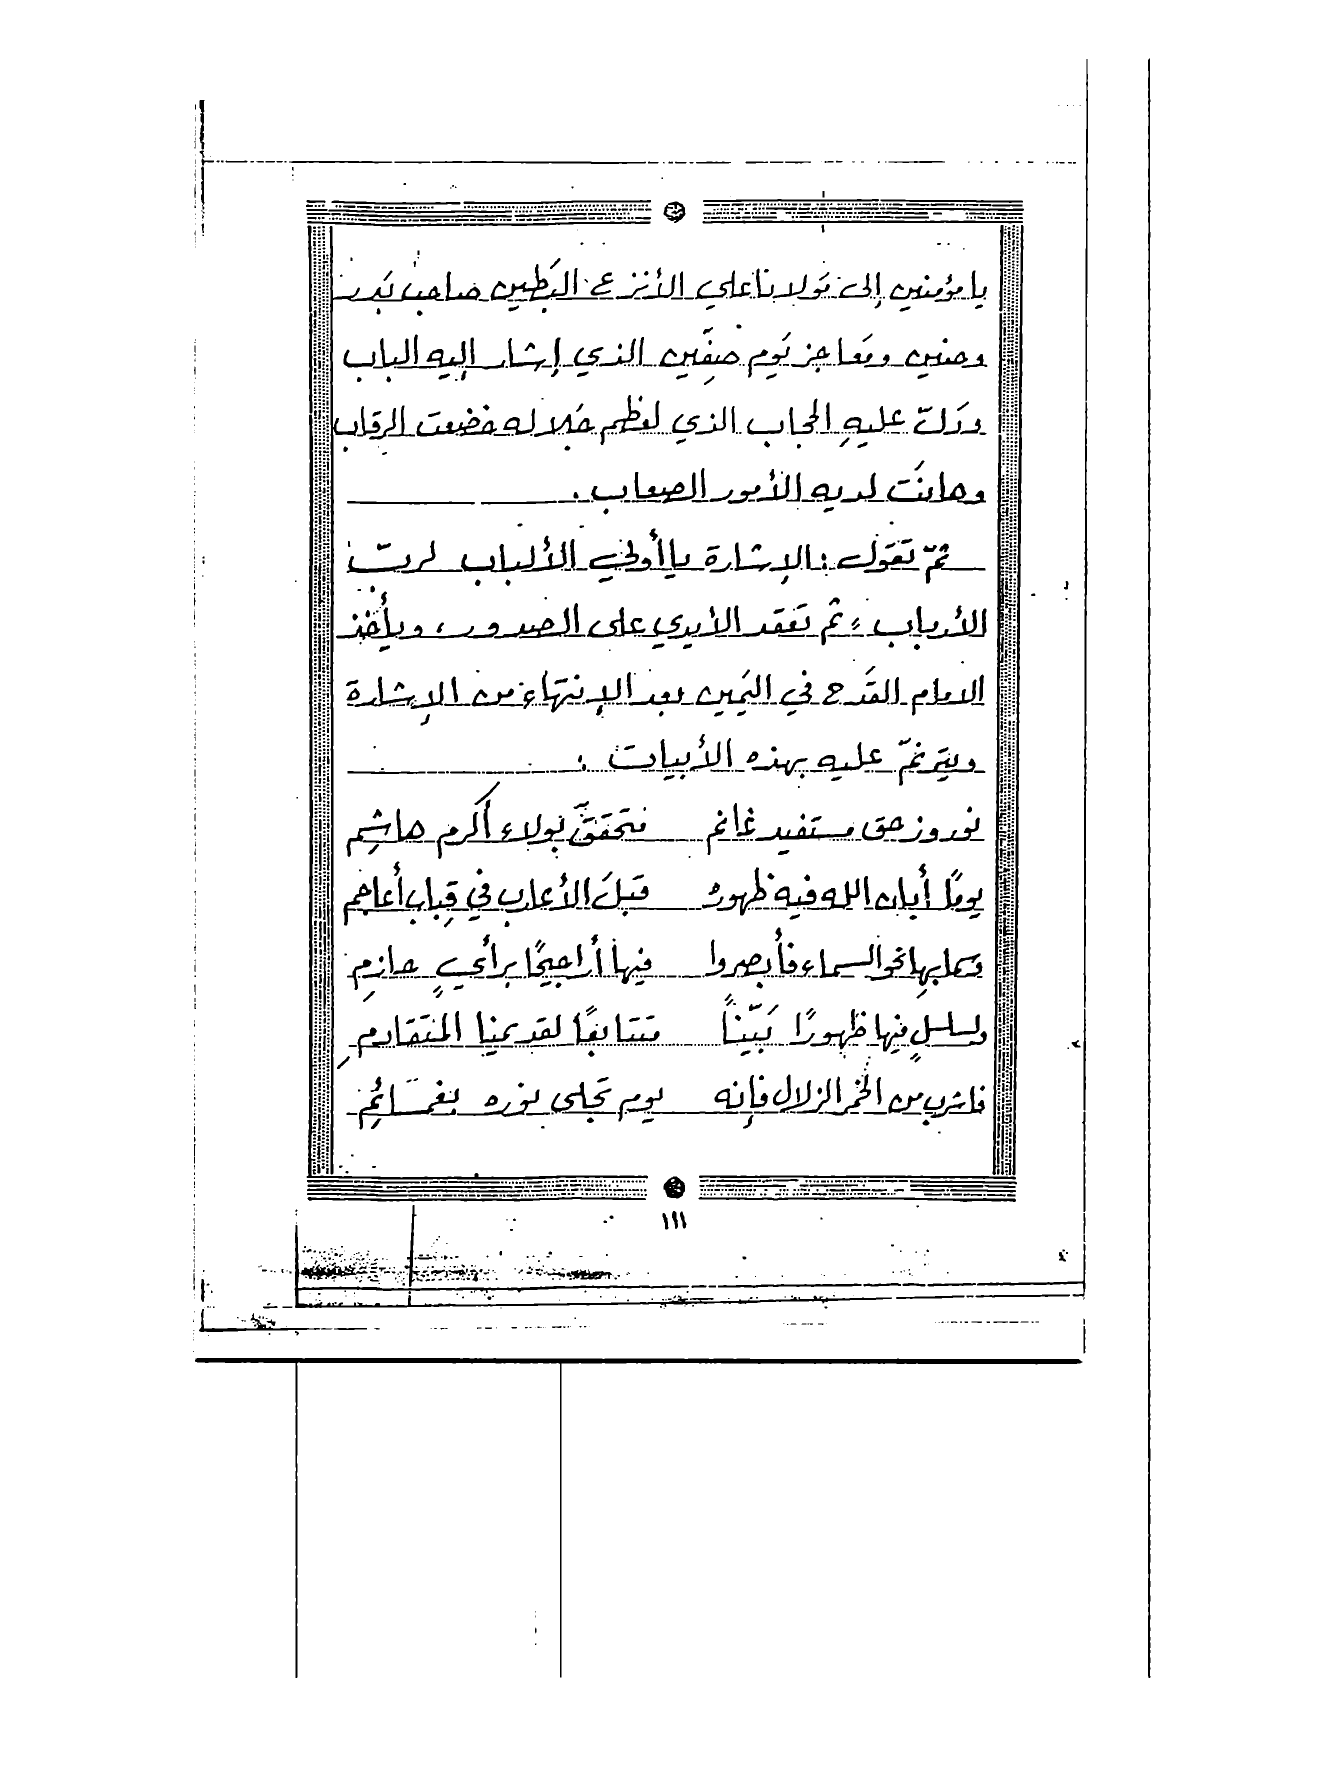 يا مؤمنين إلى مَولانا علي الأنزع البَطين صاحب بَدر
وحنين ومَعاجز يَوم صِفّين الذي إشار إليه الباب
ودَلّ عليهِ الحجاب الذي لعظم جَلاله خضعت الرقاب
وهانَت لديه الأمور الصعاب.
ثمّ تقول: الإشارة ياأولي الألباب لربّ
الأرباب، ثم تعقد الأيدي على الصدور، ويأخذ
الامام القَدح في اليَمين بعد الإنتهاء من الإشارة
ويترنمّ عليه بهذه الأبيات:
نوروز حق مستفيد غانم متحققّ بولاء أكرم هاشِم
يومًا أبان الله فيه ظهورهُ قبلَ الأعارب في قِباب أعاجم
وسما بهِا نحو السماء فأبصروا فيها أراجيحًا برأيٍ حازمِ
ولسلسلٍ فيها ظهورًا بَيّناً متتابعًا لقديمنا المتقادمِ
فاشرب من الخمر الزلال فإنه يوم تجلى نوره بغمَائِم
١١١